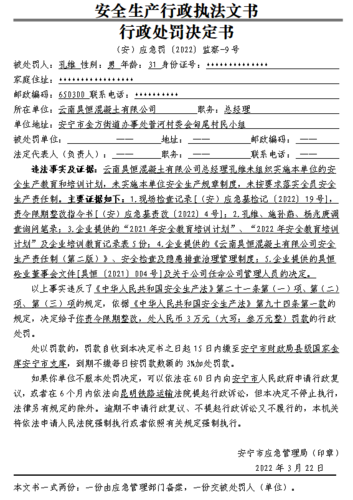 安全生产行政执法文书
行政处罚决定书
（安）应急罚〔2022〕监察-9号
被处罚人：孔维 性别：男 年龄：31 身份证号：**************
家庭住址：*****************
邮政编码：650300 联系电话：***********
所在单位：云南具恒混凝土有限公司 职务：总经理
单位地址：安宁市金方街道办事处普河村委会甸尾村民小组
被处罚单位：—— 地址：—— 邮政编码：——
法定代表人（负责人）：—— 职务：—— 联系电话：——
违法事实及证据：云南具恒混凝土有限公司总经理孔维未组织实施本单位的安
全生产教育和培训计划，未实施本单位安全生产规章制度，未按要求落实全员安全
生产责任制。主要证据如下：1.现场检查记录[（安）应急基检记〔2022〕19号]，
责令限期整改指令书[（安）应急基责改〔2022〕4号]；2.孔维、施
调
查询问笔录；3.企业提供的“2021年安全教育培训计划”、“2022年安全教育培训
计划”及企业培训教育记录表5份；4.企业提供的《云南具恒混凝土有限公司安全
生产责任制（第二版）》、安全检查及隐患排查治理管理制度；5.企业提供的具恒
砼业董事会文件[具恒〔2021〕004号]及关于公司任命公司管理人员的决定。
以上事实违反了《中华人民共和国安全生产法》第二十一条第（一）项、第（二）
项、第（三）项的规定，依据《中华人民共和国安全生产法》第九十四条第一款的
规定，决定给予你责令限期整改，处人民币3万元（大写：叁万元整）罚款的行政
处罚。
处以罚款的，罚款自收到本决定书之日起15日内缴至安宁市财政局县级国家金
库安宁市支库，到期不缴每日按罚款数额的3%加处罚款。
如果你单位不服本处罚决定，可以依法在60日内向安宁市人民政府申请行政复
议，或者在6个月内依法向昆明铁路运输法院提起行政诉讼，但本决定不停止执行，
法律另有规定的除外。逾期不申请行政复议、不提起行政诉讼又不履行的，本机关
将依法申请人民法院强制执行或者依照有关规定强制执行。
安宁市应急管理局（印章）
2022年3月22日
本文书一式两份：一份由应急管理部门备案，一份交被处罚人（单位）。